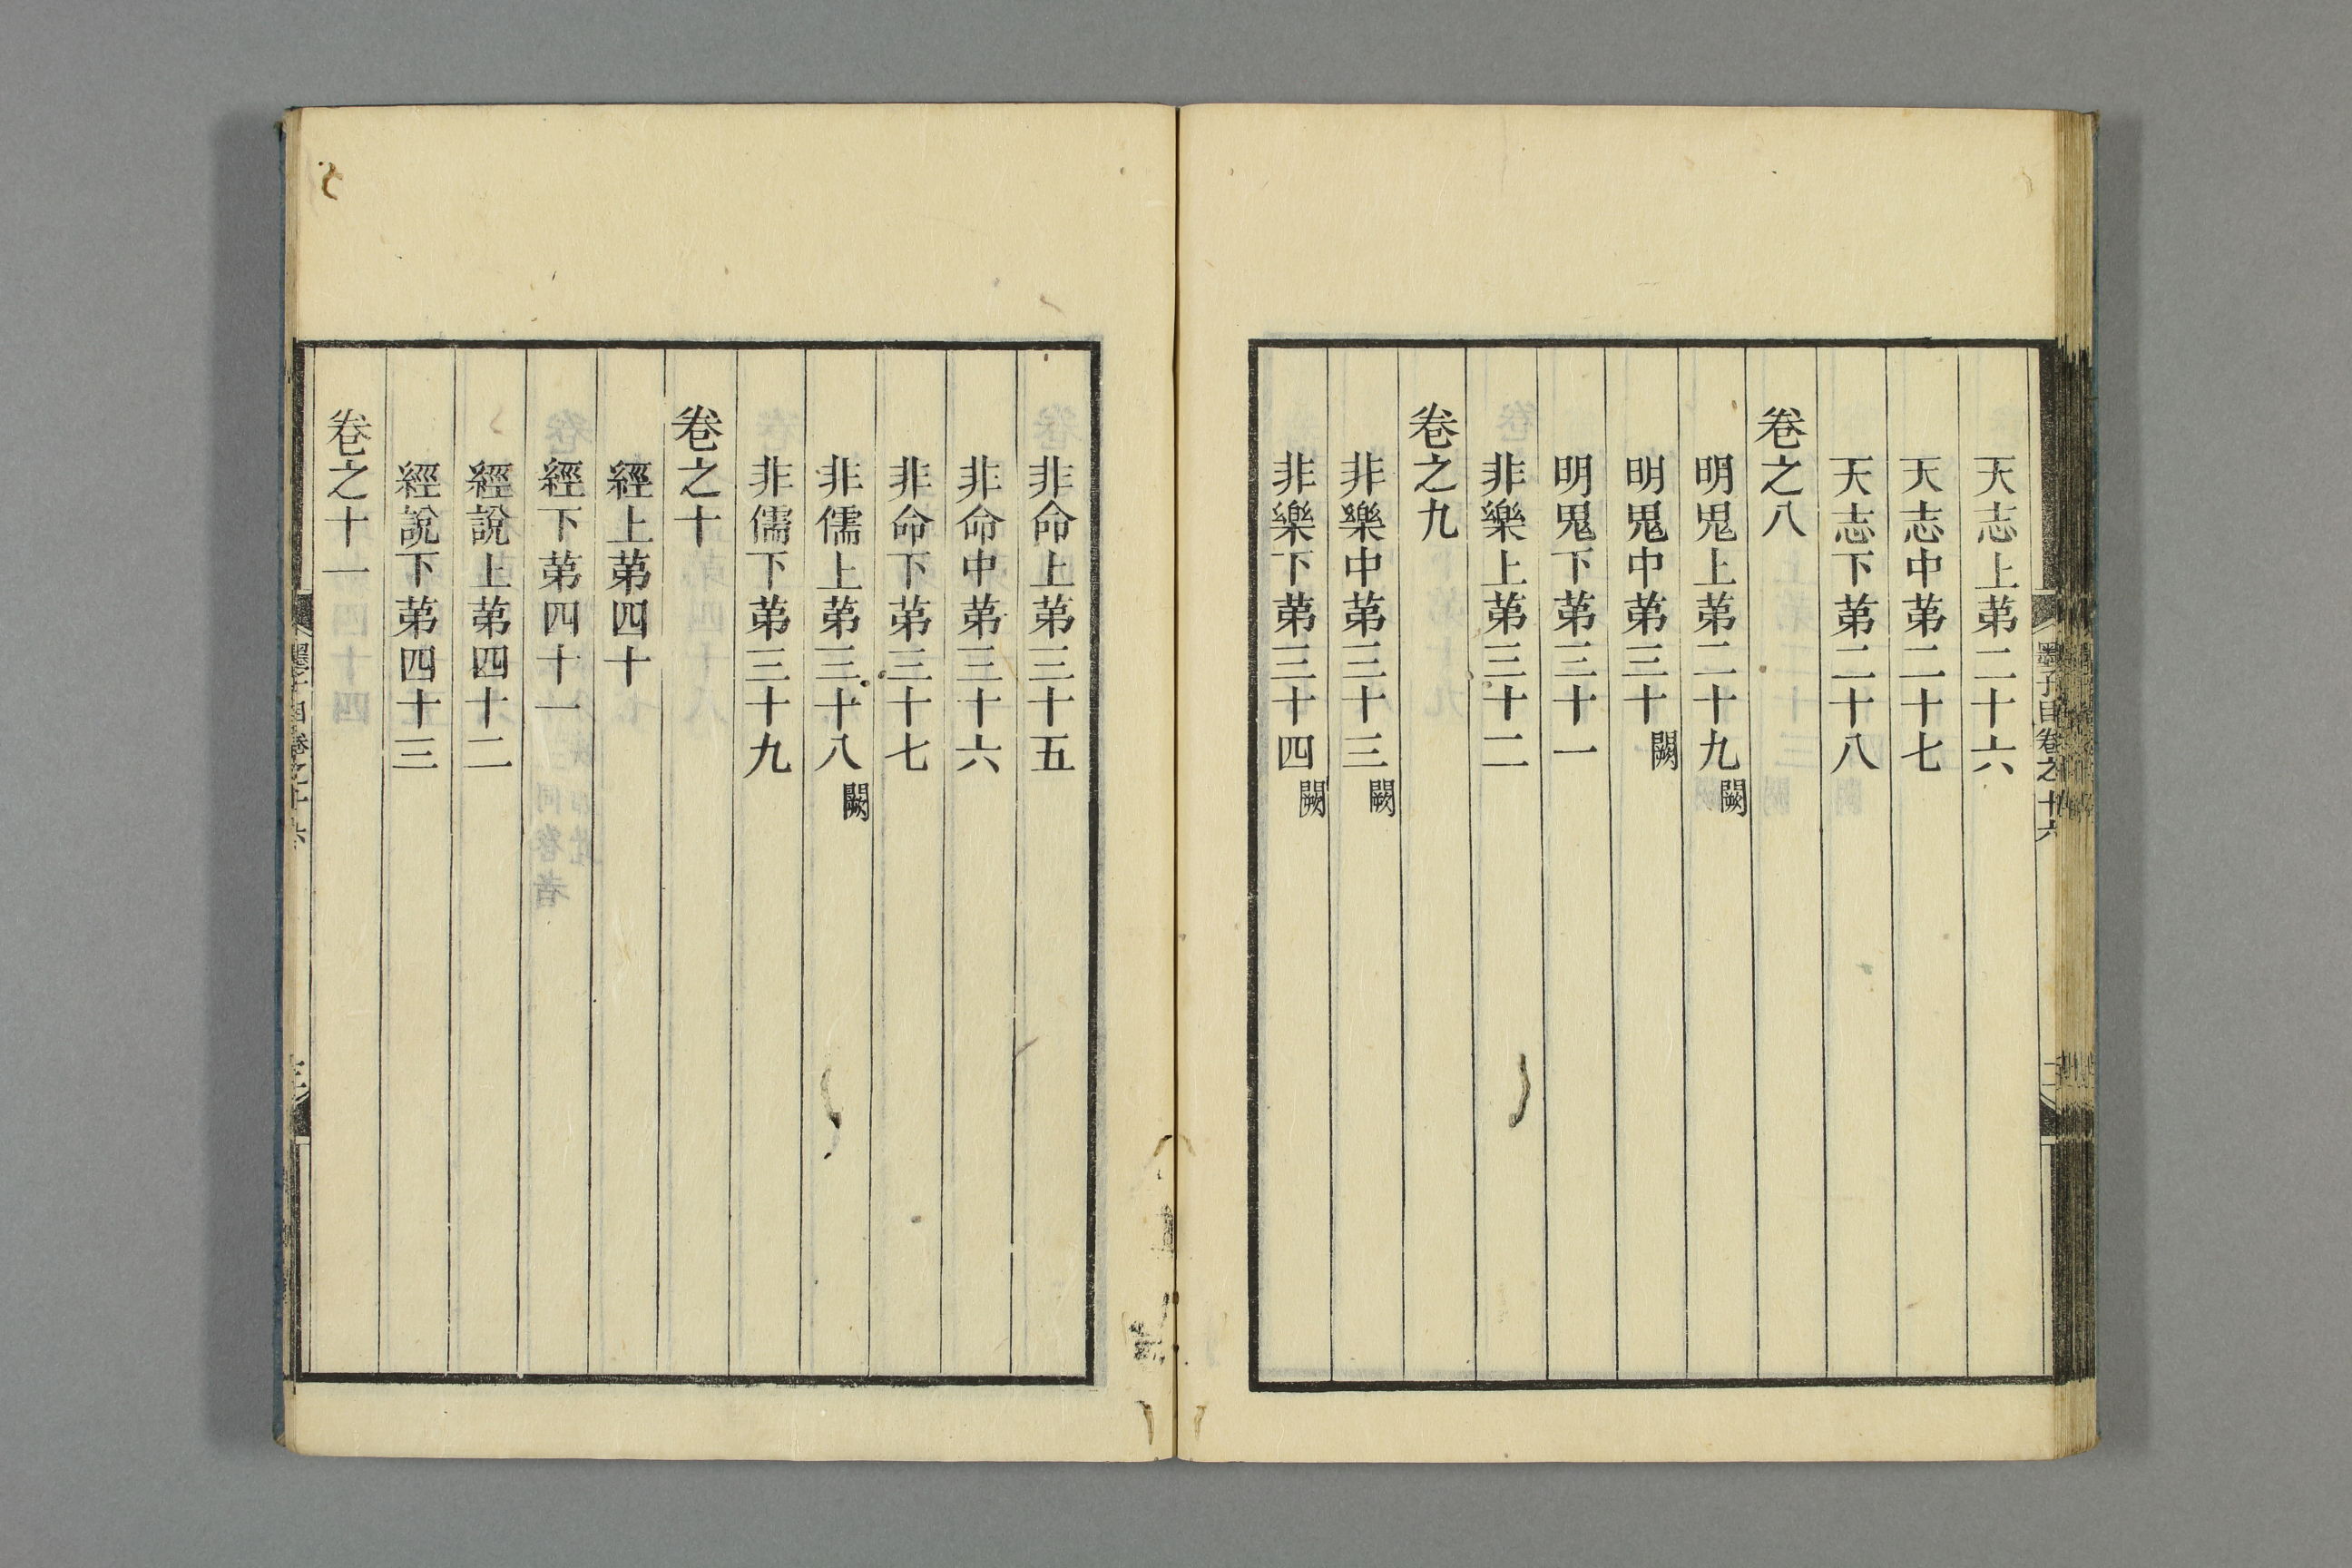 天志上苐二十六
天志中苐二十七
天志下苐二十八
卷之八
明鬼上苐二十九闕
明鬼中苐三十闕
明鬼下苐三十一
非樂上苐三十二
卷之九
非樂中苐三十三闕
非樂下苐三十四闕
非命上苐三十五
非命中苐三十六
非命下苐三十七
非儒上苐三十八闕
非儒下苐三十九
卷之十
經上苐四十
經下苐四十一
經說上苐四十二
經說下苐四十三
卷之十一
墨子目卷之十六